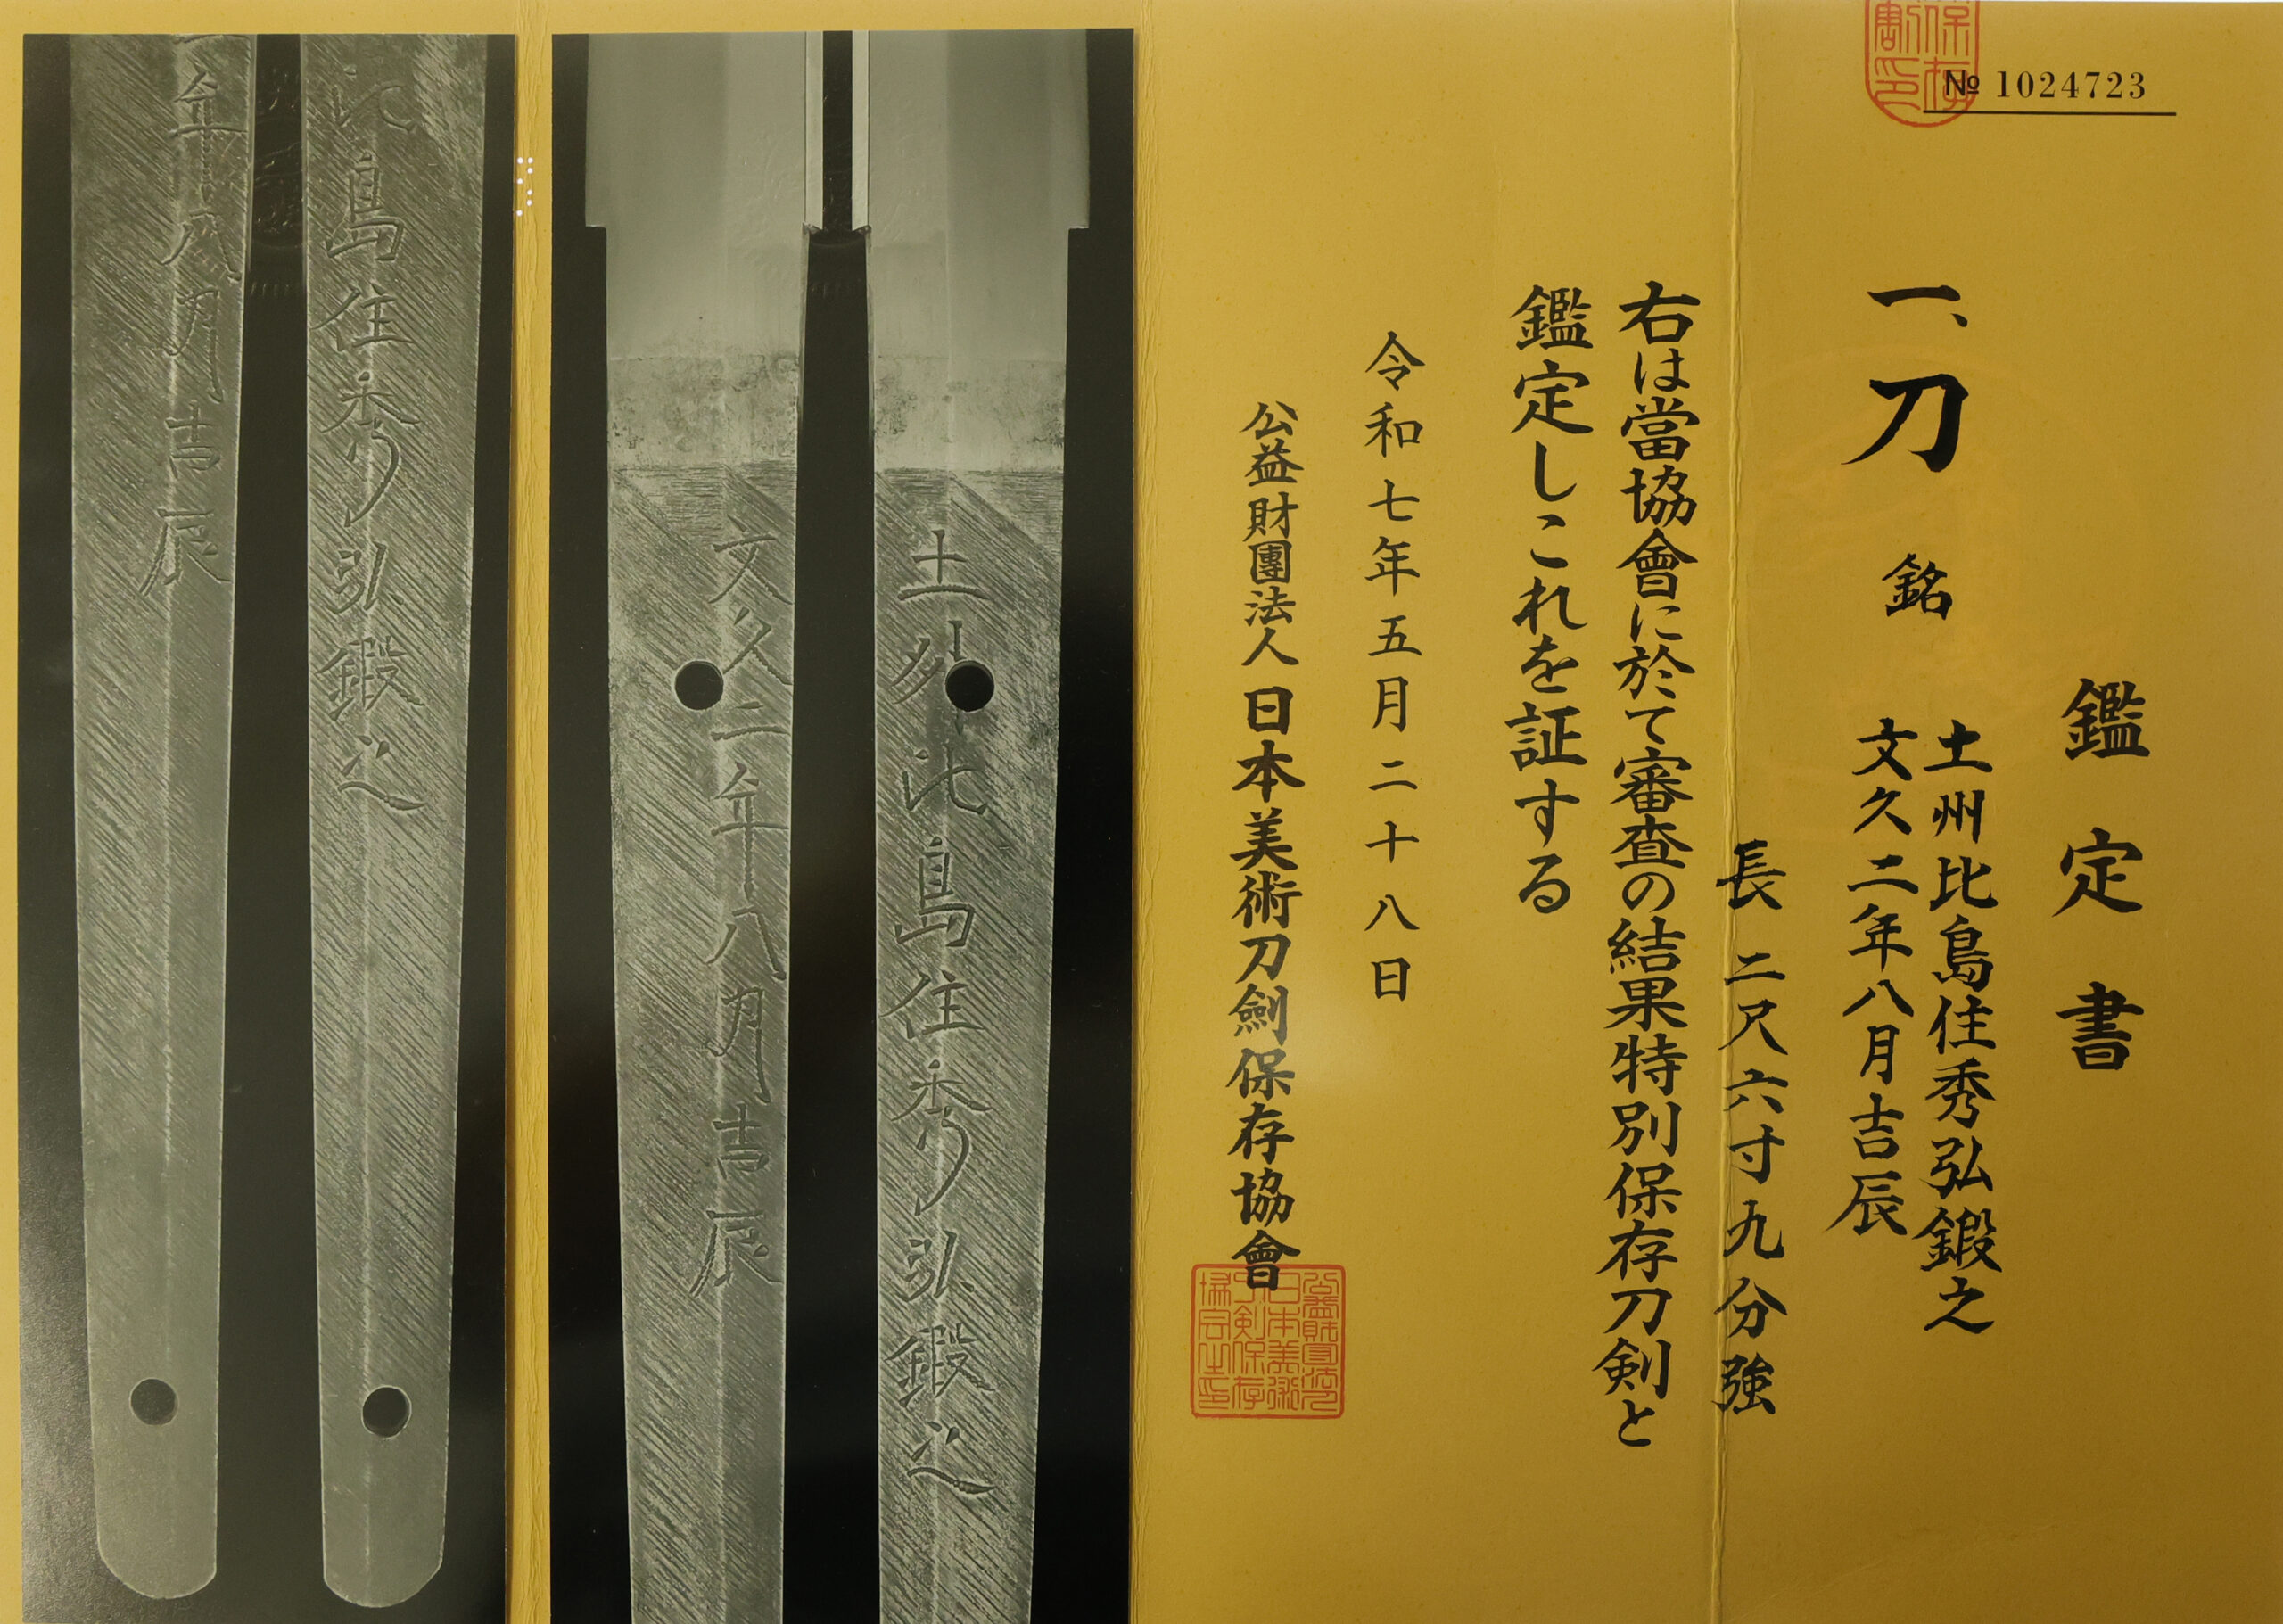 № 1024723
鑑定書
一、刀 銘
土州比島住秀弘鍛之
文久二年八月吉辰
長二尺六寸九分強
右は當協會に於て審査の結果特別保存刀剣と
鑑定しこれを証する
令和七年五月二十八日
公益財團法人日本美術刀劍保存協會
土州比島住秀弘鍛之
文久二年八月吉辰
比島住秀弘鍛之
年八月吉辰